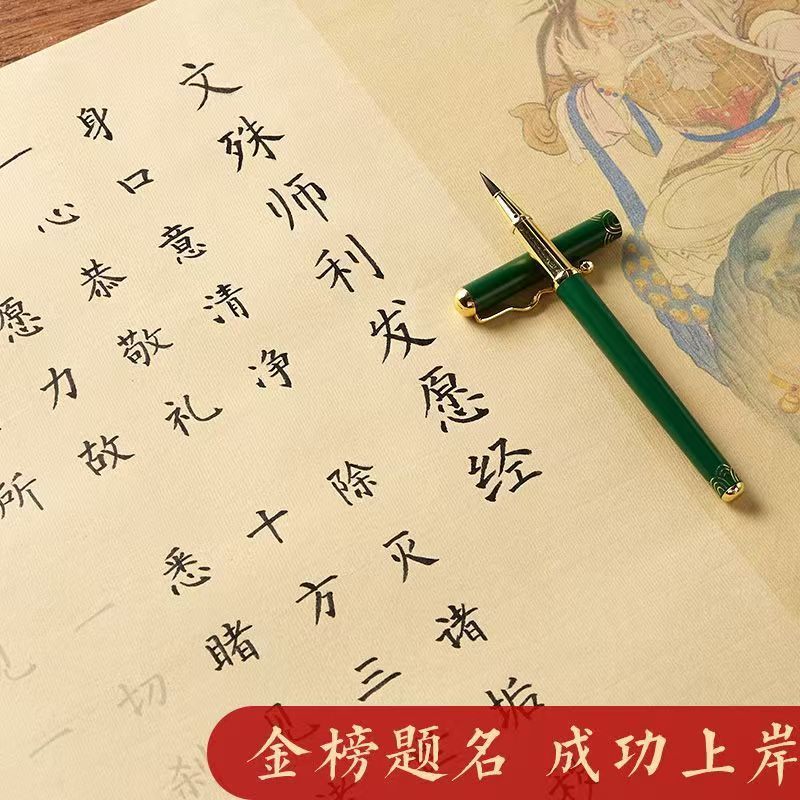 文殊师利发愿经
身口意清净
除灭诸垢
一心恭敬礼
十方三
愿力故
悉睹见
力
所
一切刹
见一
金榜题名 成功上岸